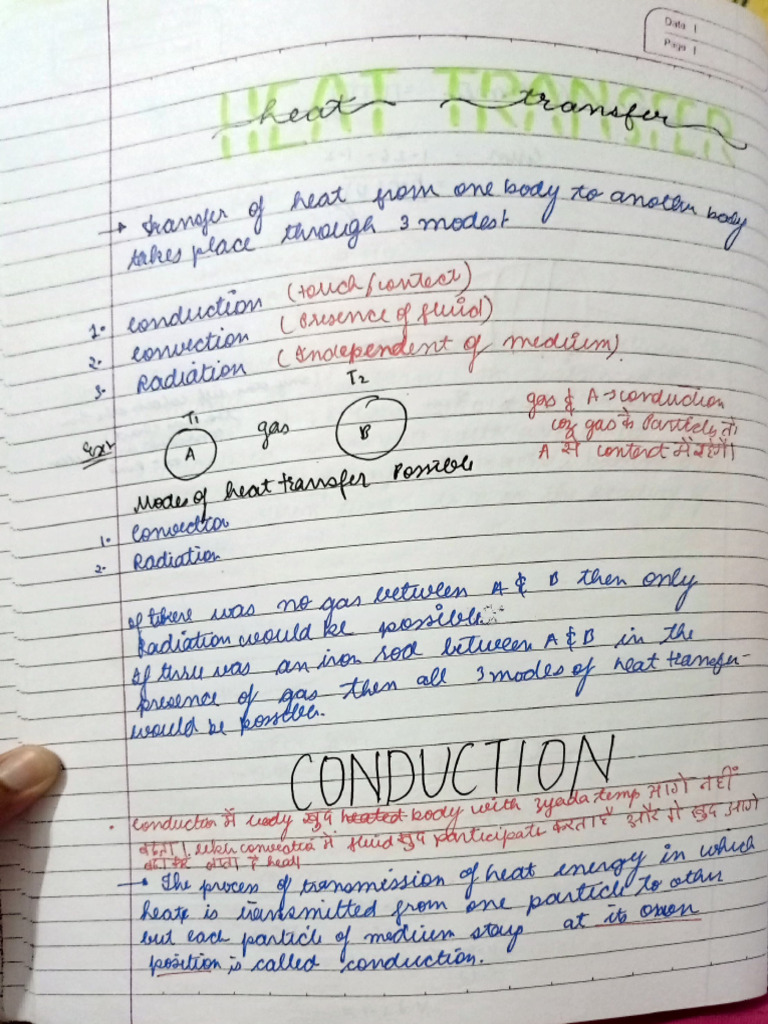 Date |
Page |
HEAT TRANSFER
heat transfer
→ transfer of heat from one body to another body
takes place through 3 modest
1. conduction (touch/contact)
2. convection (Presence of fluid)
3. Radiation (Independent of medium).
T1 T2
A gas B
gas & A → conduction
coz gas के Particles तो
A से contact में रहेंगे।
Modes of heat transfer Possible
1. Convection
2. Radiation
If there was no gas between A & B then only
Radiation would be possible.
If there was an iron rod between A & B in the
presence of gas then all 3 modes of heat transfer
would be possible.
CONDUCTION
• conduction में body खुद heated body with zyada temp आगे नहीं
convection में fluid खुद participate करता है और खुद आगे
है heat
→ • The process of transmission of heat energy in which
heat is transmitted from one particle to other
but each particle of medium stays at its own
position is called conduction.